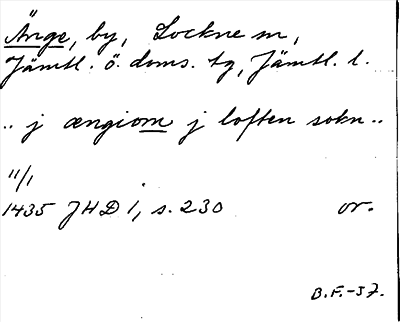 Änge, by, Lockne sn,
Jämtl. ö. doms. tg, Jämtl. l.
.. j ængiom j loften sokn ..
11/1
1435 JHD 1, s. 230 or.
B.F.-37.